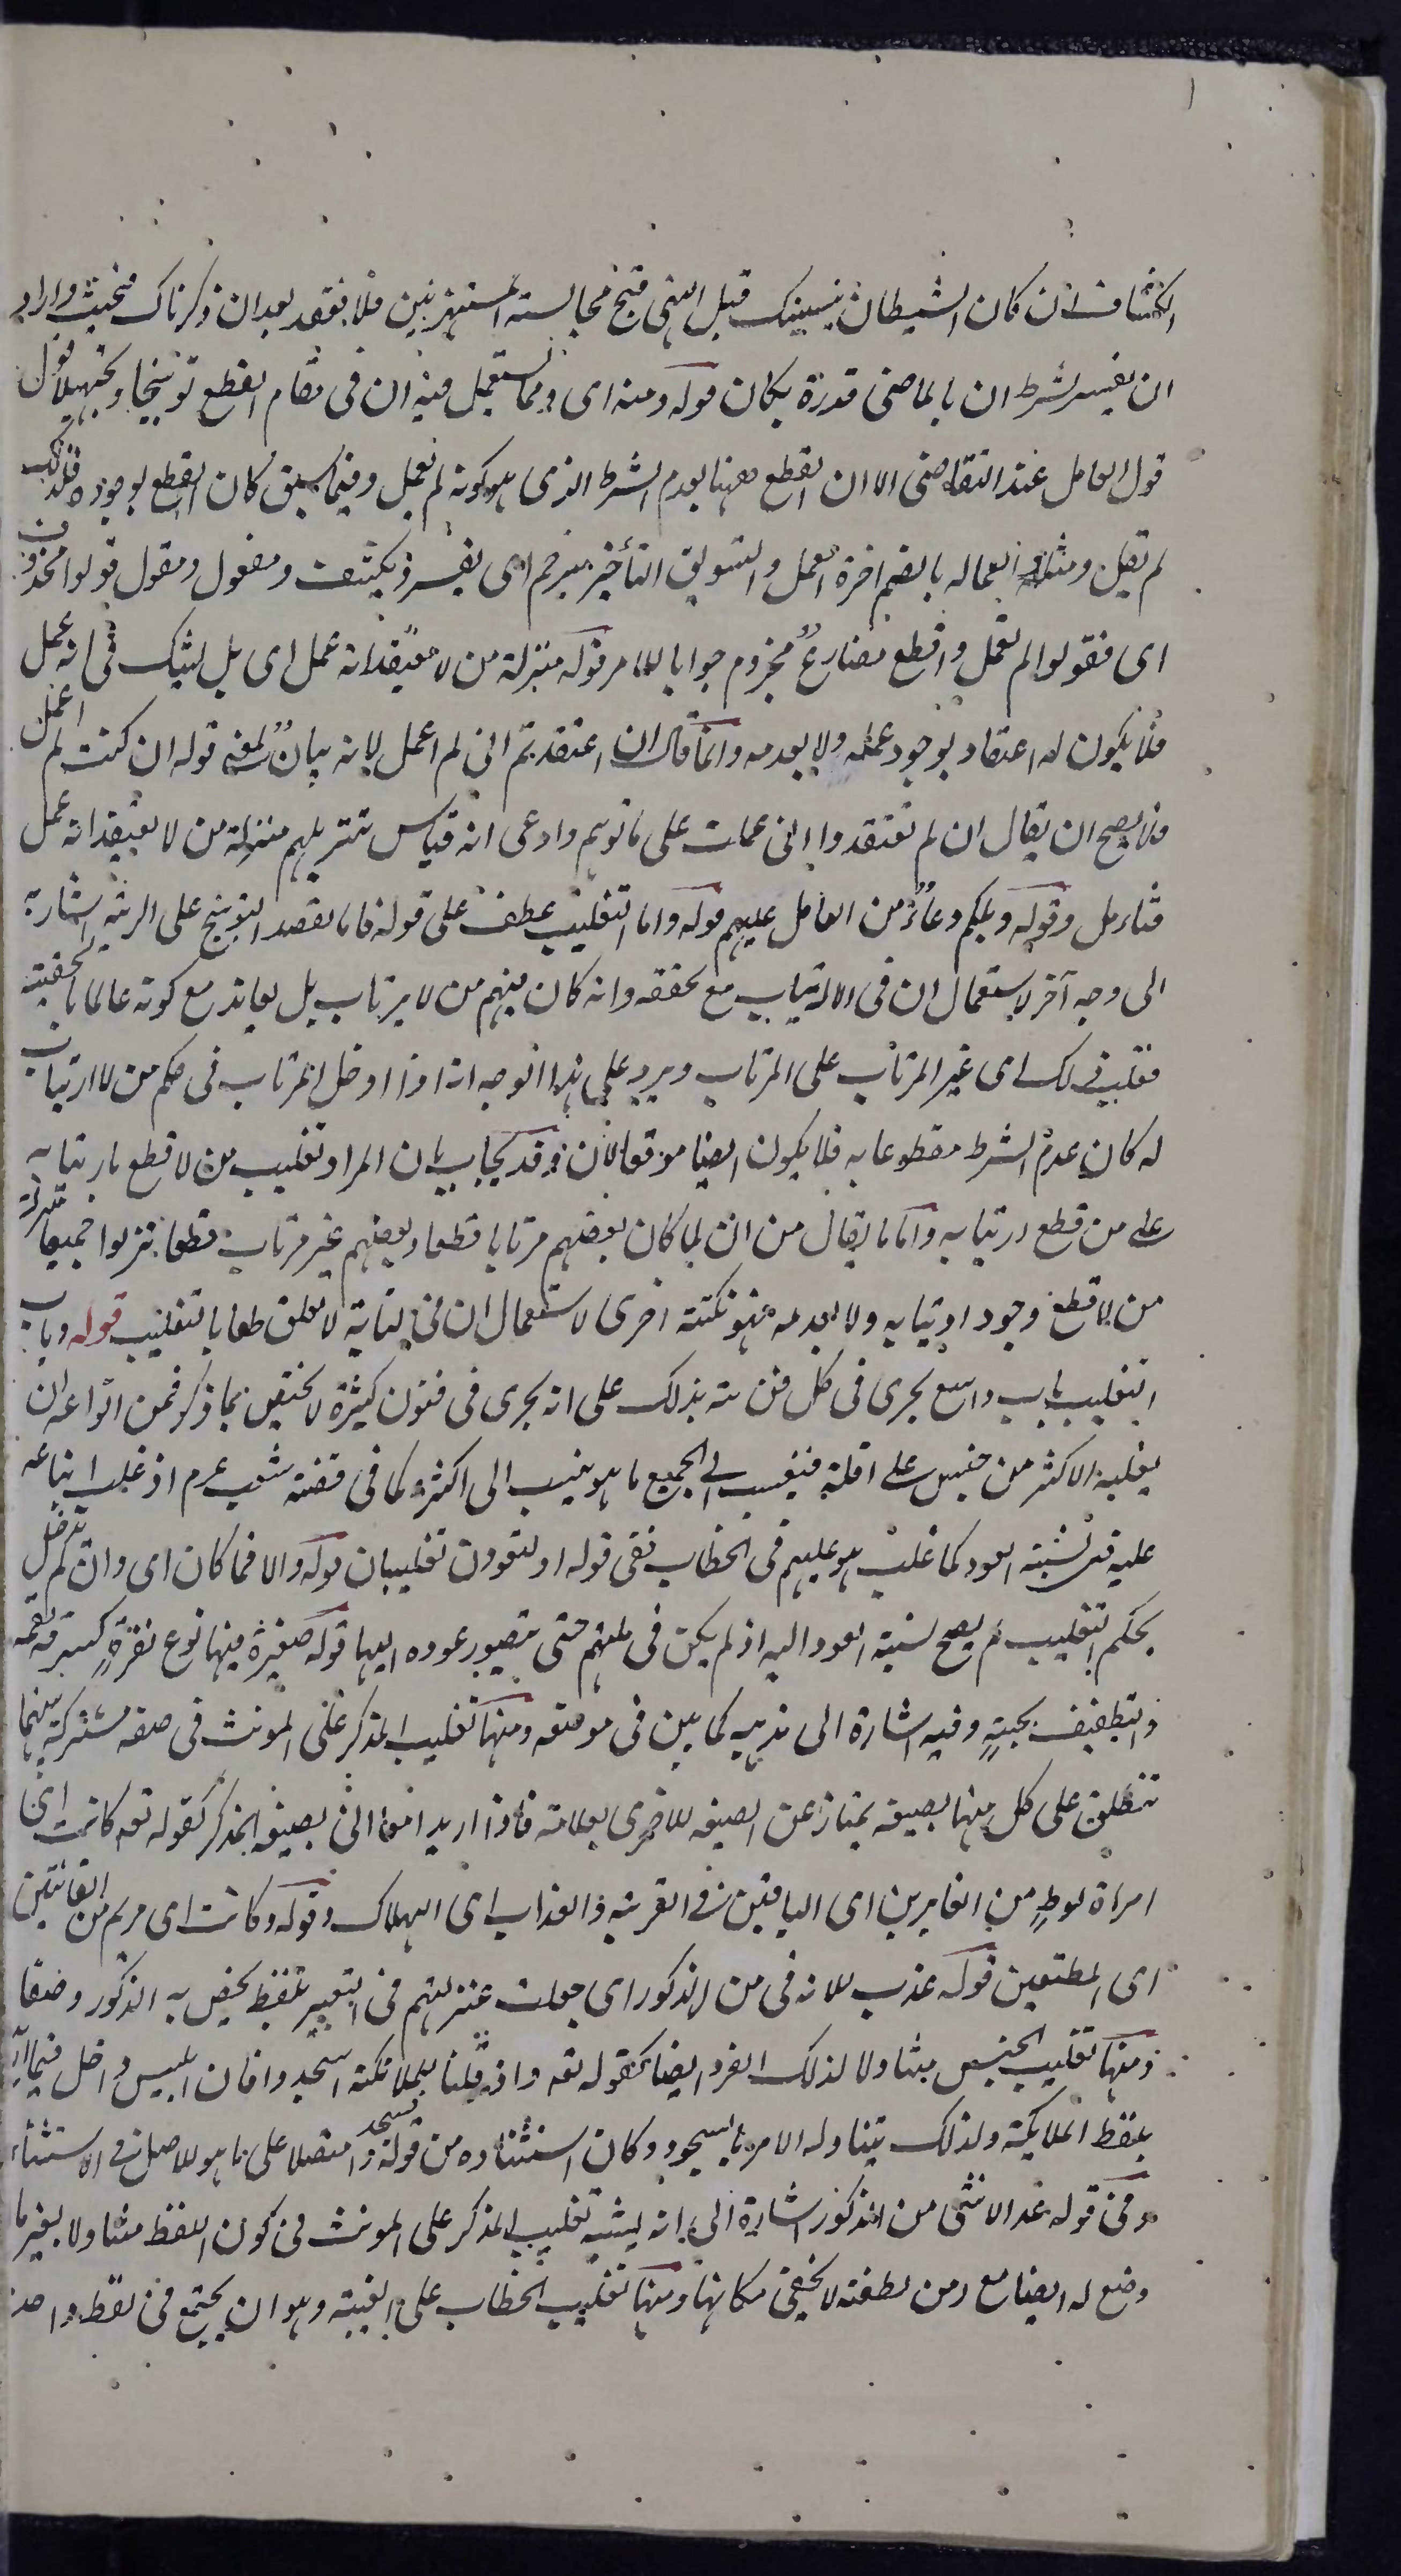 الكشاف ان كان الشيطان ينسينك قبل النهى قبح مجالسة المستهزئين فلا تقعد بعد ان ذكرناك فحيث اراد
ان يفسر لشرط ان بالماضى قدره بكان قوله ومنه اى ومما يستعمل فيه ان فى مقام القطع توبيخا وتجهيلا قول
قول العامل عند التقاضى الا ان القطع ههنا بعدم الشرط الذى هو كونه لم يعمل وفيما سبق كان القطع بوجوده فلذلك
لم يقل ومثله العمالة بالضم اجرة العمل والتسويف التأخير مبرحم اى يفسره يكشف ومفعول ومقول قولوا محذوف
اى فقولوا لم تعمل واقطع مضارع مجزوم جوابا للامر قوله منزلة من لا يعتقد انه عمل اى بل يشك فى انه عمل
فلا يكون له اعتقاد بوجود عمله ولا بعدمه وانما قال ان اعتقدتم انى لم اعمل لانه بيان لمعنى قوله ان كنت لم اعمل
فلا يصح ان يقال ان لم تعتقدوا انى عملت على ما توهم وادعى انه قياس تنزيلهم منزلة من لا يعتقد انه عمل
فتامل وقوله ويلكم دعاء من العامل عليهم قوله واما التغليب عطف على قوله فاما لقصد التوبيخ على الريبة اشارة
الى وجه آخر لاستعمال ان فى الارتياب مع تحققه وانه كان منهم من لا يرتاب بل يعاند مع كونه عالما بالحقية
فغلب فى ذلك اى غير المرتاب على المرتاب ويرد على هذا الوجه انه اذا ادخل المرتاب فى حكم من لا ارتياب
له كان عدم الشرط مقطوعا به فلا يكون ايضا موقعا لان وقد يجاب بان المراد تغليب من لا قطع بارتيابه
على من قطع ارتيابه واما ما يقال من انه لما كان بعضهم مرتابا قطعا وبعضهم غير مرتاب قطعا نزلوا جميعا منزلة
من لا قطع وجود ارتيابه ولا بعدمه فهو نكتة اخرى لاستعمال ان فى الآية لا تعلق لها بالتغليب قوله وباب
التغليب باب واسع يجرى فى كل فن نبه بذلك على انه يجرى فى فنون كثيرة لا يختص بما ذكر فمن انواعه ان
يغلب الاكثر من جنس على اقله فينسب الى الجميع ما هو ينسب الى اكثره كما فى قصة شعيب عم اذ غلب اتباعه
عليه فى نسبة العود كما غلب هو عليهم فى الخطاب ففى قوله او لتعودن تغليبان قوله والا فما كان اى وان لم يدخل
بحكم التغليب لم يصح نسبة العود اليه اذ لم يكن فى ملتهم حتى يتصور عوده اليها قوله صغيرة فيها نوع نفرة كسرقة لقمة
والتطفيف بحبة وفيه اشارة الى مذهبه كما بين فى موضعه ومنها تغليب المذكر على المونث فى صفة مشتركة بينهما
تنطلق على كل منهما بصيغة يمتاز عن الصيغة للاخرى بعلامة فاذا اريد بصيغة المذكر كقوله تعه كانت اى
امراة لوط من الغابرين اى الباقين فى القرية والعذاب اى الهلاك وقوله وكانت اى مريم من القانتين
اى المطيعين قوله عدت الانثى من الذكور اى جعلت بمنزلتهم فى التعبير بلفظ يختص به الذكور وضعا
ومنها تغليب الجنس متناولا لذلك الفرد ايضا كقوله تعه واذ قلنا للملائكة اسجدوا فان ابليس داخل فيما اريد
بلفظ الملايكة ولذلك يتناوله الامر بالسجود وكان استثناؤه من قوله فسجدوا متصلا على ما هو الاصل فى الاستثناء
وفى قوله عد الانثى من الذكور اشارة الى انه يشبه تغليب المذكر على المونث فى كون اللفظ متناولا لغير ما
وضع له ايضا مع رمز لطيفة لا يخفى مكانها ومنها تغليب الخطاب على الغيبة وهو ان يجتمع فى لفظ واحد